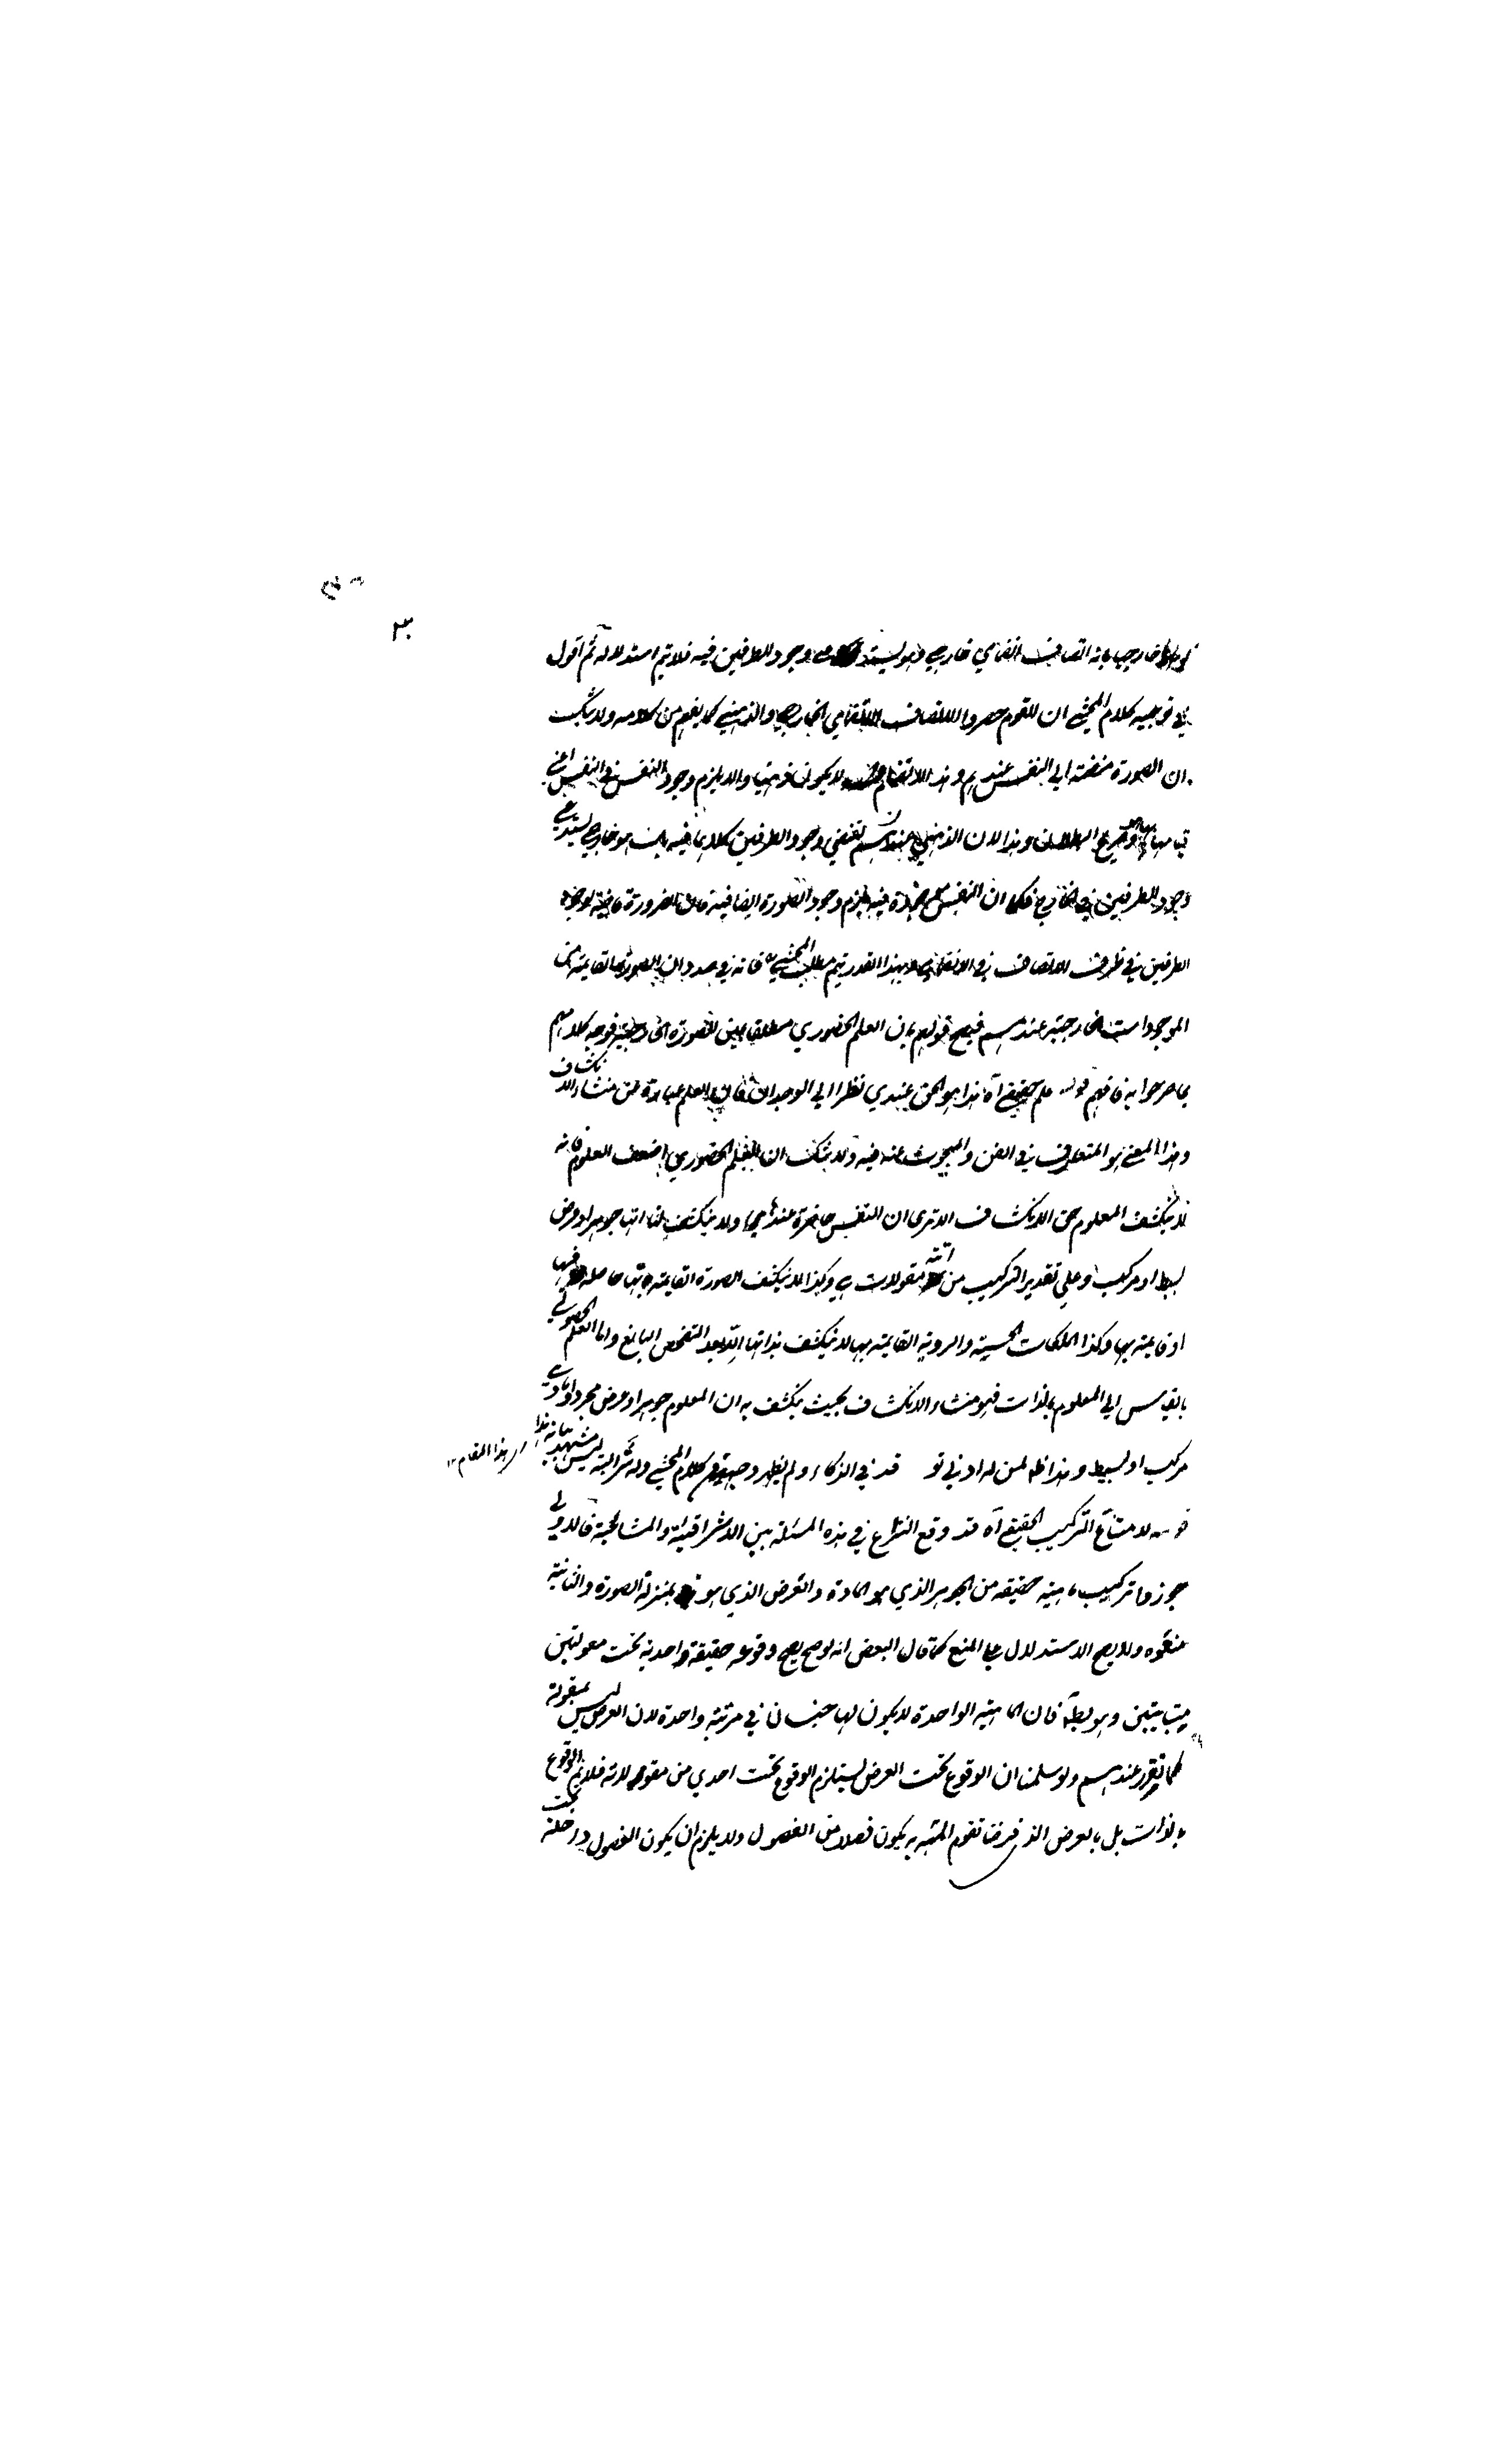 ٣٠
خارجيا بانه اتصاف انضمامي خارجي وهو يستدعي وجود الطرفين فيه فلا يتم استدلاله ثم اقول
في توجيه كلام المحشي ان القوم حصروا الاتصاف الانضمامي الخارجي والذهني كما يفهم من كلامه ولا شك
ان الصورة منضمة الي النفس عندهم وهذا الانضمام لا يكون ذهنيا والا يلزم وجود النفس في النفس اعني
قيامها البطلان وهذا لان الذهني عندهم يقتضي وجود الطرفين كلاهما فيه بل هو خارجي يستدعي
وجود الطرفين في الخارج فكما ان النفس موجودة فيه يلزم وجود الصورة ايضا فيه فان الضرورة قاضية لوجود
الطرفين في ظرف الاتصاف في الانضمامي وبهذا القدر يتم مطلب المحشي فانه في صدد ان الصورة القايمة من
الموجودات الخارجية عندهم فيصح قولهم بان العلم الحضوري مطلقا عين الصورة الخارجية فوجه كلامهم
بما صرحوا به فافهم قوله علم حقيقي آه هذا هو الحق عندي نظرا الي الوجدان فان العلم عبارة عن منشاء الانكشاف
وهذا المعني هو المتعارف في الفن والمبحوث عنه فيه ولا شك ان العلم الحضوري اضعف العلوم فانه
لا ينكشف المعلوم حق الانكشاف الا تري ان النفس حاضرة عندها ولا ينكشف لنا انها جوهر او عرض
بسيط او مركب وعلي تقدير التركيب من اية مقولات هي وكذا لا ينكشف الصورة القايمة بانها حاصلة فيها
او قايمة بها وكذا الملكات الحسنة والردية القايمة بها لا ينكشف بذاتها الا بعد التفحص البالغ واما العلم الحصولي
بالقياس الي المعلوم بالذات فهو منشاء الانكشاف بحيث ينكشف به ان المعلوم جوهر او عرض مجرد او مادي
مركب او بسيط وهذا ظاهر لمن له ادني تو قد في الذكاء ولم يظهر وجه في كلام المحشي
هذا المقام ١٢
قوله لامتناع التركيب الحقيقي آه قد وقع النزاع في هذه المسئلة بين الاشراقية والمشائية فالاولي
جوزوا تركيب ماهية حقيقه من الجوهر الذي هو المادة والعرض الذي هو بمنزلة الصورة والثانية
منعوه ولا يصح الاستدلال علي المنع كما قال البعض انه لو صح يصح وقوع حقيقة واحدة تحت مقولتين
متباينتين وهو باطل فان الماهية الواحدة لا يكون لها جنسان في مرتبة واحدة لان العرض ليس بمقولة
كما تقرر عندهم ولو سلمنا ان الوقوع تحت العرض يستلزم الوقوع تحت احدي من مقولاته فلا يلزم الوقوع
بالذات بل بالعرض الذ فرضنا تقوم المهية به يكون فصلا من الفصول ولا يلزم ان يكون الفصول داخلة تحت